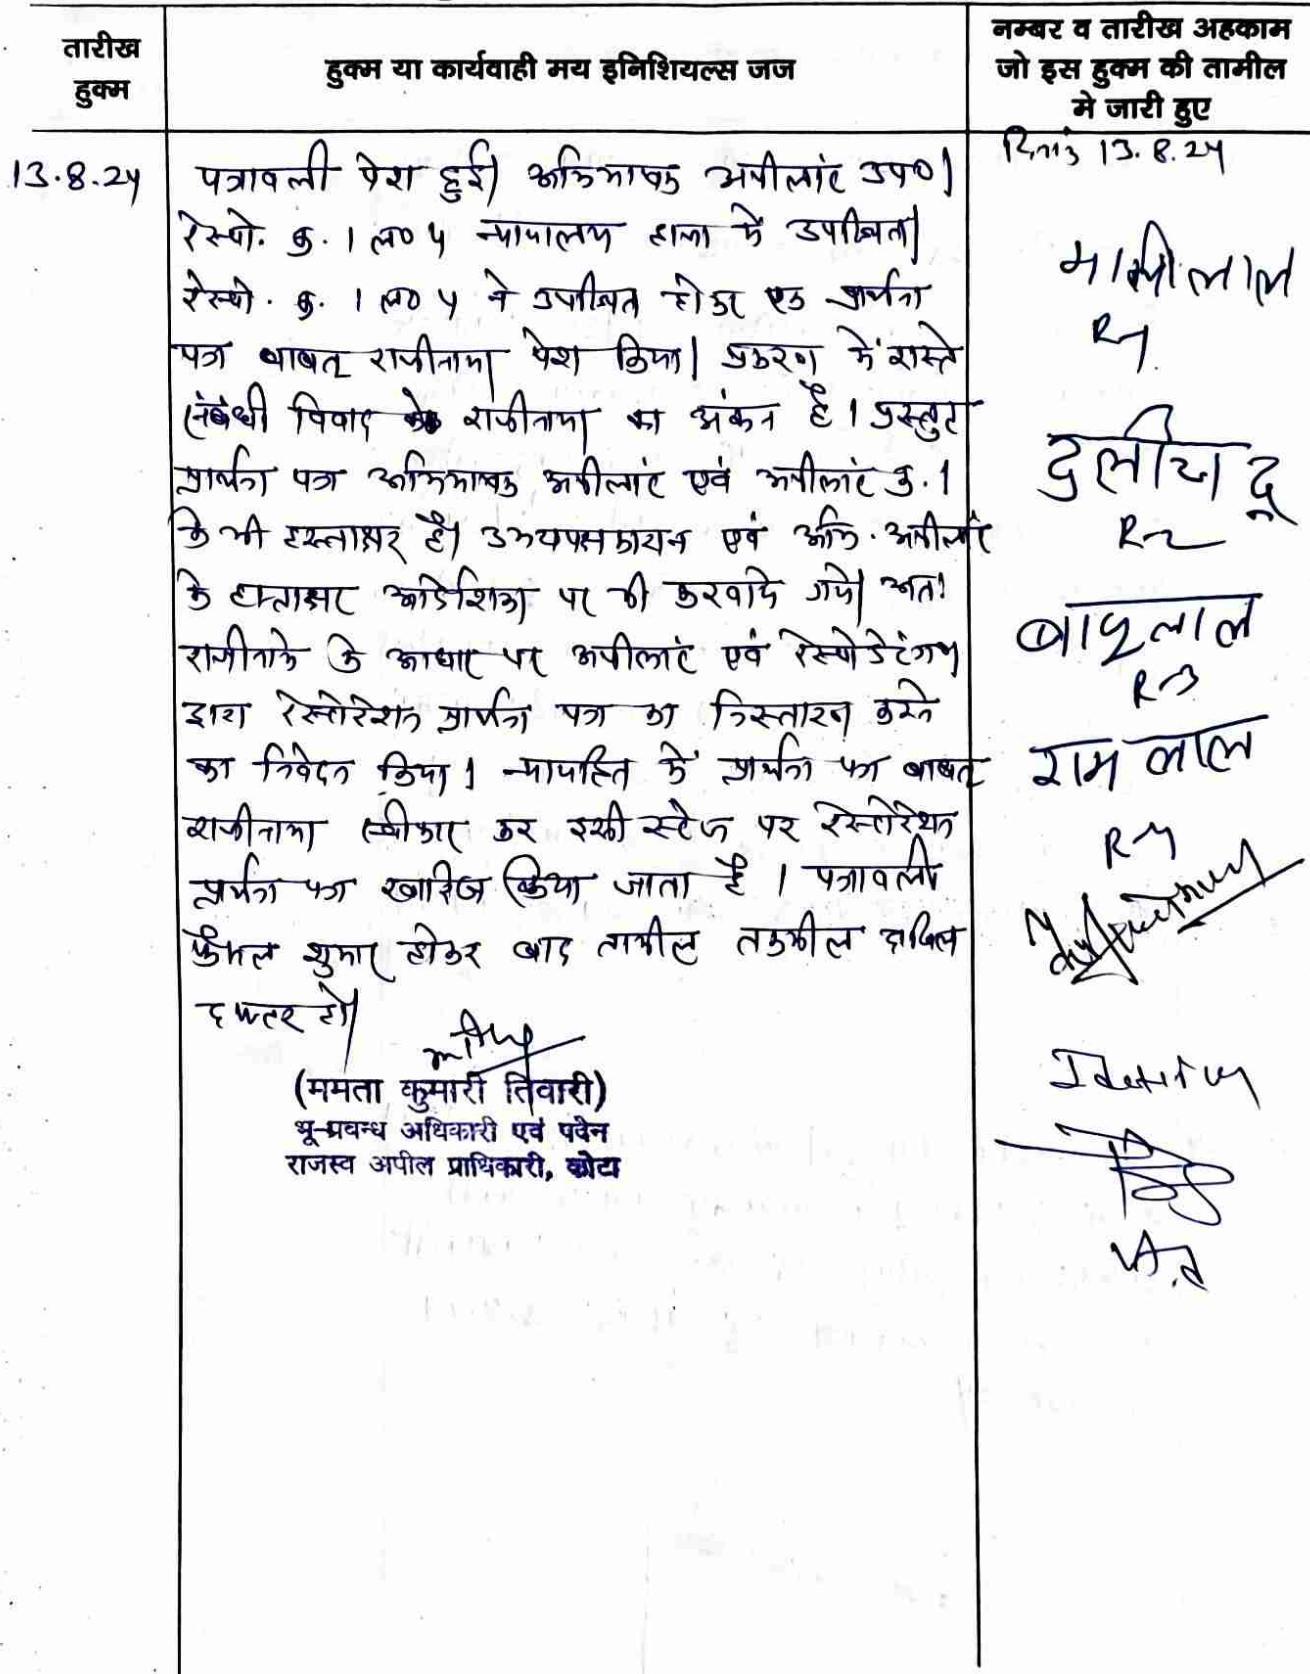 तारीख
हुक्म
हुक्म या कार्यवाही मय इनिशियल्स जज
नम्बर व तारीख अहकाम
जो इस हुक्म की तामील
मे जारी हुए
13.8.24
पत्रावली पेश हुई। अभिभाषक अपीलांट उप०।
रेस्पो. क्र. 1 ला० 4 न्यायालय हाजा में उपस्थित।
रेस्पो. क्र. 1 ला० 4 ने उपस्थित होकर एक प्रार्थना
पत्र बाबत् राजीनामा पेश किया। प्रकरण में रास्ते
संबंधी विवाद राजीनामा का अंकन है। प्रस्तुत
प्रार्थना पत्र अभिभाषक अपीलांट एवं अपीलांट क्र. 1
के भी हस्ताक्षर है। उभयपक्षकारान एवं अभि. अपीलांट
के हस्ताक्षर आदेशिका पर भी करवाये गये। अतः
राजीनामे के आधार पर अपीलांट एवं रेस्पोडेंटगण
द्वारा रेस्टोरेशन प्रार्थना पत्र का निस्तारण करने
का निवेदन किया। न्यायहित में प्रार्थना पत्र बाबत्
राजीनामा स्वीकार कर इसी स्टेज पर रेस्टोरेशन
प्रार्थना पत्र खारिज किया जाता है। पत्रावली
फैसल शुमार होकर बाद तामील तकमील दाखिल
दफ्तर हो।
(ममता कुमारी तिवारी)
भू-प्रबन्ध अधिकारी एवं पदेन
राजस्व अपील प्राधिकारी, कोटा
दिनांक 13.8.24
R-1
दुलीचन्द
R-2
बाबूलाल
R-3
राम लाल
R-4